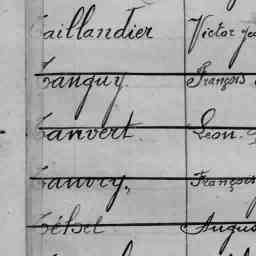 Taillandier Victor
Tanguy François
Tanvert Léon
Tanvry François
Tétrel Augus